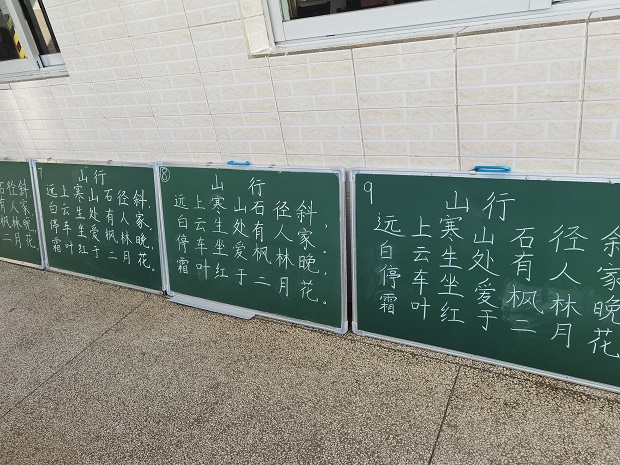 石径斜，
有人家。
枫林晚，
二月花。
7
山行
远上寒山石径斜，
白云生处有人家。
停车坐爱枫林晚，
霜叶红于二月花。
⑧
山行
远上寒山石径斜，
白云生处有人家。
停车坐爱枫林晚，
霜叶红于二月花。
9
山行
远上寒山石径斜
白云生处有人家
停车坐爱枫林晚
霜叶红于二月花